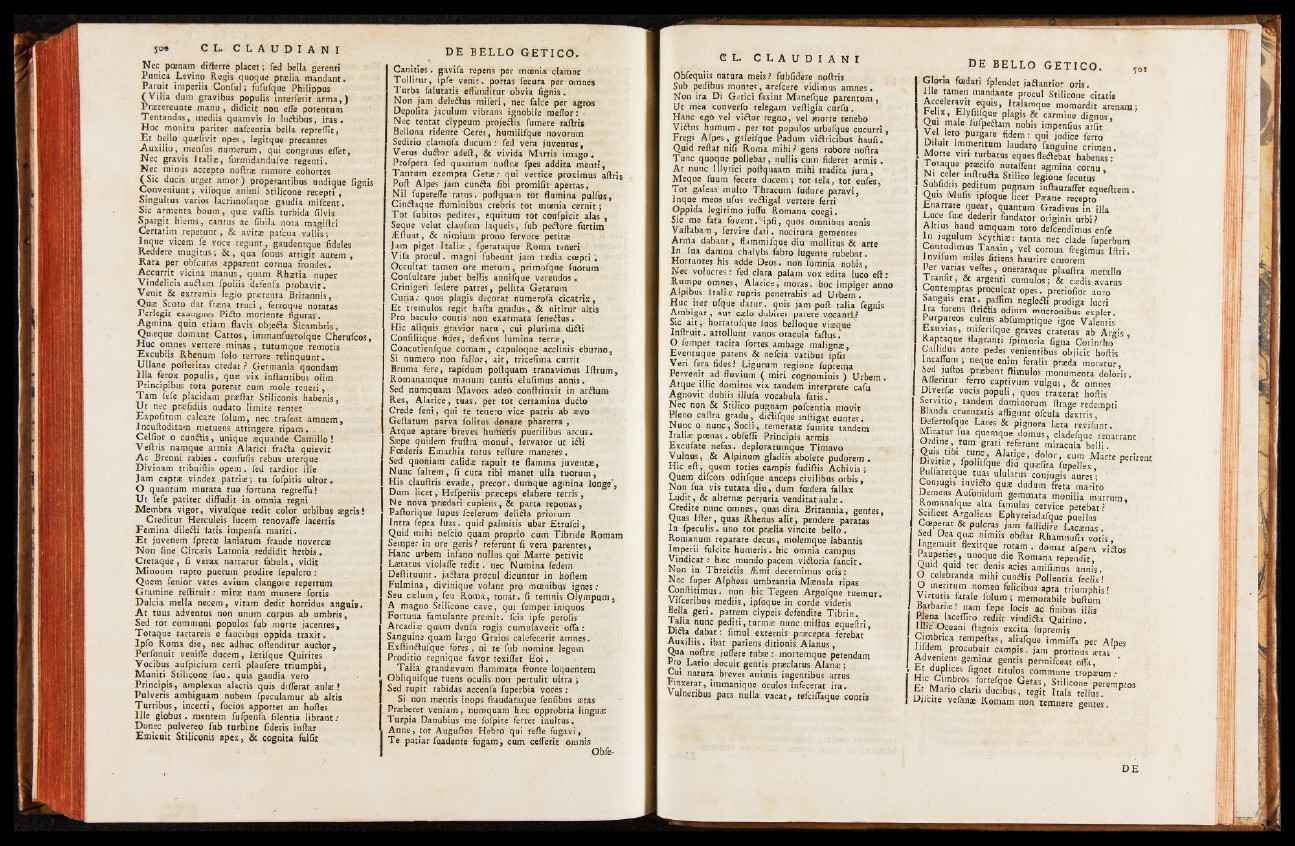 500 CL. CLAUDIANI
Nec pœnam differre placet; ſed bella gerenti
Punica Levino Regis quoque prælia mandant.
Paruit imperiis Conſul; fuſuſque Philippus
(Vilia dum gravibus populis interſerit arma,)
Prætereunte manu, didicit non eſſe potentum
Tentandas, mediis quamvis in luctibus, iras.
Hoc monitu pariter naſcentia bella repreſſit,
Et bello quæſivit opes, legitque precantes
Auxilio, menſus numerum, qui congruus eſſet,
Nec gravis Italiæ, formidanduſve regenti.
Nec minus accepto noſtræ rumore cohortes
(Sic ducis urget amor) properantibus undique ſignis
Conveniunt; viſoque animi Stilicone recepti,
Singultus varios lacrimoſaque gaudia miſcent.
Sic armenta boum, quæ vaſtis turbida ſilvis
Spargit hiems, cantus ac ſibila nota magiſtri
Certatim repetunt, & avitæ paſcua vallis;
Inque vicem ſe voce regunt, gaudentque fideles
Reddere mugitus; &, qua ſonus attigit aurem,
Rara per obſcuras apparent cornua frondes.
Accurrit vicina manus, quam Rhætia nuper
Vindelicis auctam ſpoliis defenſa probavit.
Venit & extremis legio prætenta Britannis,
Quæ Scoto dat fræna truci, ferroque notatas
Perlegit exangues Picto moriente figuras.
Agmina quin etiam flavis objecta Sicambris,
Quæque domant Cattos, immanſuetoſque Cheruſcos,
Huc omnes vertere minas, tutumque remotis
Excubiis Rhenum ſolo terrore relinquunt.
Ullane poſteritas credat? Germania quondam
Illa ferox populis, quæ vix inſtantibus olim
Principibus tota poterat cum mole teneri,
Tam ſeſe placidam præſtat Stiliconis habenis,
Ut nec præſidiis nudato limite tentet
Expoſitum calcare ſolum, nec tranſeat amnem,
Incuſtoditam metuens attingere ripam.
Celſior o cunctis, unique æquande Camillo!
Veſtris namque armis Alarici fracta quievit
Ac Brenni rabies. confuſis rebus uterque
Divinam tribuiſtis opem. ſed tardior ille
Jam captæ vindex patriæ; tu ſoſpitis ultor.
O quantum mutata tuo fortuna regreſſu!
Ut ſeſe pariter diffudit in omnia regni
Membra vigor, vivuſque redit color urbibus ægris!
Creditur Herculeis lucem renovaſſe lacertis
Femina dilecti fatis impenſa mariti.
Et juvenem ſpretæ laniatum fraude novercæ
Non ſine Circæis Latonia reddidit herbis.
Cretaque, ſi verax narratur fabula, vidit
Minoum rupto puerum prodire ſepulcro:
Quem ſenior vates avium clangore repertum
Gramine reſtituit: miræ nam munere ſortis
Dulcia mella necem, vitam dedit horridus anguis.
At tuus adventus non unum corpus ab umbris,
Sed tot communi populos ſub morte jacentes,
Totaque tartareis e faucibus oppida traxit.
Ipſo Roma die, nec adhuc oſtenditur auctor,
Perſonuit veniſſe ducem, lætiſque Quirites
Vocibus auſpicium certi plauſere triumphi,
Muniti Stilicone ſuo. quis gaudia vero
Principis, amplexus alacris quis differat aulæ!
Pulveris ambiguam nubem ſpeculamur ab altis
Turribus, incerti, ſocios apportet an hoſtes
Ille globus. mentem ſuſpenſa ſilentia librant:
Donec pulvereo ſub turbine ſideris inſtar
Emicuit Stiliconis apex, & cognita fulſit
DE BELLO GETICO.
Canities. gaviſa repens per mœnia clamor
Tollitur, ipſe venit. portas ſecura per omnes
Turba ſalutatis effunditur obvia ſignis.
Non jam delectus miſeri, nec falce per agros
Depoſita jaculum vibrans ignobile meſſor:
Nec tentat clypeum projectis ſumere raſtris
Bellona ridente Ceres, humiliſque novorum
Seditio clamoſa ducum: ſed vera juventus,
Verus ductor adeſt, & vivida Martis imago.
Proſpera ſed quantum noſtræ ſpes addita menti,
Tantum exempta Getæ: qui vertice proximus aſtris
Poſt Alpes jam cuncta ſibi promiſit apertas,
Nil ſupereſſe ratus. poſtquam tot flumina pullus,
Cinctaque fluminibus crebris tot mœnia cernit;
Tot ſubitos pedites, equitum tot conſpicit alas,
Seque velut clauſum laqueis, ſub pectore furtim
Æſtuat, & nimium prono fervore petitæ
Jam piget Italiæ, ſperataque Roma teneri
Viſa procul. magni ſubeunt jam tædia cœpti.
Occultat tamen ore metum, primoſque ſuorum
Conſultare jubet bellis anniſque verendos.
Crinigeri ſedere patres, pellita Getarum
Curia: quos plagis decorat numeroſa cicatrix,
Et tremulos regit haſta gradus, & nititur altis
Pro baculo contis non exarmata ſenectus.
Hic aliquis gravior natu, cui plurima dicti
Conſiliique fides, defixus lumina terræ,
Concutienſque comam, capuloque acclinis eburno,
Si numero non fallor, ait, triceſima currit
Bruma fere, rapidum poſtquam tranavimus Iſtrum,
Romanamque manum tantis eluſimus annis.
Sed numquam Mavors adeo conſtrinxit in arctum
Res, Alarice, tuas. per tot certamina docto
Crede ſeni, qui te tenero vice patris ab ævo
Geſtatum parva ſolitus donare pharetra,
Atque aptare breves humeris puerilibus arcus.
Sæpe quidem fruſtra monui, ſervator ut icti
Fœderis Emathia tutus tellure maneres.
Sed quoniam calidæ rapuit te flamma juventæ,
Nunc ſaltem, ſi cura tibi manet ulla tuorum,
His clauſtris evade, precor. dumque agmina longe,
Dum licet, Heſperiis præceps elabere terris,
Ne nova prædari cupiens, & parta reponas,
Paſtorique lupus ſcelerum delicta priorum
Intra ſepta luas. quid palmitis uber Etruſci,
Quid mihi neſcio quam proprio cum Tibride Romam
Semper in ore geris? referunt ſi vera parentes,
Hanc urbem inſano nullus qui Marte petivit
Lætatus violaſſe redit. nec Numina ſedem
Deſtituunt. jactata procul dicuntur in hoſtem
Fulmina, divinique volant pro mœnibus ignes:
Seu cælum, ſeu Roma, tonat. ſi temnis Olympum,
A magno Stilicone cave, qui ſemper iniquos
Fortuna famulante premit. ſcis ipſe peroſis
Arcadiæ quam denſa rogis cumulaverit oſſa:
Sanguine quam largo Graios calefecerit amnes.
Exſtinctuſque fores, ni te ſub nomine legum
Proditio regnique favor texiſſet Eoi.
Talia grandævum flammata fronte loquentem
Obliquiſque tuens oculis non pertulit ultra;
Sed rupit rabidas accenſa ſuperbia voces:
Si non mentis inops fraudataque ſenſibus ætas
Præberet veniam, numquam hæc opprobria linguæ
Turpia Danubius me ſoſpite ferret inultus.
Anne, tot Auguſtos Hebro qui teſte fugavi,
Te patiar ſuadente fugam, cum ceſſerit omnis
Obſe-
CL. CLAUDIANI
Obſequiis natura meis? ſubſidere noſtris
Sub pedibus montes, areſcere vidimus amnes.
Non ita Di Getici faxint Maneſque parentum,
Ut mea converſo relegam veſtigia curſu.
Hanc ego vel victor regno, vel morte tenebo
Victus humum. per tot populos urbeſque cucurri,
Fregi Alpes, galeiſque Padum victricibus hauſi.
Quid reſtat niſi Roma mihi? gens robore noſtra
Tunc quoque pollebat, nullis cum fideret armis.
At nunc Illyrici poſtquam mihi tradita jura,
Meque ſuum fecere ducem; tot tela, tot enſes,
Tot galeas multo Thracum ſudore paravi,
Inque meos uſus vectigal vertere ferri
Oppida legitimo juſſu Romana coegi.
Sic me fata fovent. ipſi, quos omnibus annis
Vaſtabam, ſervire dati. nocitura gementes
Arma dabant, flammiſque diu mollitus & arte
In ſua damna chalybs fabro lugente rubebat.
Hortantes his adde Deos. non ſomnia nobis,
Nec volucres: ſed clara palam vox edita luco eſt:
Rumpe omnes, Alarice, moras. hoc impiger anno
Alpibus Italiæ ruptis penetrabis ad Urbem.
Huc iter uſque datur. quis jam poſt talia ſegnis
Ambigat, aut cælo dubitet parere vocanti?
Sic ait, hortatuſque ſuos belloque viæque
Inſtruit. attollunt vanos oracula faſtus.
O ſemper tacita ſortes ambage malignæ,
Eventuque parens & neſcia vatibus ipſis
Veri ſera fides! Ligurum regione ſuprema
Pervenit ad fluvium (miri cognominis) Urbem.
Atque illic domitos vix tandem interprete caſu
Agnovit dubiis illuſa vocabula fatis.
Nec non & Stilico pugnam poſcentia movit
Pleno caſtra gradu, dictiſque inſtigat euntes.
Nunc o nunc, Socii, temeratæ ſumite tandem
Italiæ pœnas. obſeſſi Principis armis
Excuſate nefas. deploratumque Timavo
Vulnus, & Alpinum gladiis abolete pudorem.
Hic eſt, quem toties campis fudiſtis Achivis;
Quem diſcors odiiſque anceps civilibus orbis,
Non ſua vis tutata diu, dum fœdera fallax
Ludit, & alternæ perjuria venditat aulæ.
Credite nunc omnes, quas dira Britannia, gentes,
Quas Iſter, quas Rhenus alit, pendere paratas
In ſpeculis. uno tot prælia vincite bello.
Romanum reparate decus, molemque labantis
Imperii fulcite humeris. hic omnia campus
Vindicat: hæc mundo pacem victoria ſancit.
Non in Threiciis Æmi decernimus oris:
Nec ſuper Alpheas umbrantia Mænala ripas
Conſtitimus. non hic Tegeen Argoſque tuemur.
Viſceribus mediis, ipſoque in corde videtis
Bella geri. patrem clypeis defendite Tibrin.
Talia nunc pediti, turmæ nunc miſtus equeſtri,
Dicta dabat: ſimul externis præcepta ferebat
Auxiliis. ibat patiens ditionis Alanus,
Qua noſtræ juſſere tubæ: mortemque petendam
Pro Latio docuit gentis præclarus Alanæ;
Cui natura breves animis ingentibus artus
Finxerat, immanique oculos infecerat ira.
Vulneribus pars nulla vacat, reſciſſaque contis
DE BELLO GETICO. 501
Gloria fœdati ſplendet jactantior oris.
Ille tamen mandante procul Stilicone citatis
Acceleravit equis, Italamque momordit arenam;
Felix, Elyſiiſque plagis & carmine dignus,
Qui male ſuſpectam nobis impenſus arſit
Vel leto purgare fidem: qui judice ferro
Diluit immeritum laudato ſanguine crimen.
Morte viri turbatus eques flectebat habenas:
Totaque præciſo nutaſſent agmina cornu,
Ni celer inſtructa Stilico legione ſecutus
Subſidiis peditum pugnam inſtauraſſet equeſtrem.
Quis Muſis ipſoque licet Pæane recepto
Enarrare queat, quantum Gradivus in illa
Luce ſuæ dederit fundator originis urbi?
Altius haud umquam toto deſcendimus enſe
In jugulum Scythiæ: tanta nec clade ſuperbum
Contudimus Tanain, vel cornua fregimus Iſtri.
Inviſum miles ſitiens haurire cruorem
Per varias veſtes, onerataque plauſtra metallo
Tranſit, & argenti cumulos; & cædis avarus
Contemptas proculcat opes. pretioſior auro
Sanguis erat. paſſim neglecti prodiga lucri
Ira furens ſtrictis odium mucronibus explet.
Purpureos cultus abſumptique igne Valentis
Exuvias, miſeriſque graves crateras ab Argis,
Raptaque flagranti ſpirantia ſigna Corintho
Callidus ante pedes venientibus objicit hoſtis
Incaſſum; neque enim feralis præda moratur,
Sed juſtos præbent ſtimulos monumenta doloris.
Aſſeritur ferro captivum vulgus, & omnes
Diverſæ vocis populi, quos traxerat hoſtis
Servitio, tandem dominorum ſtrage redempti
Blanda cruentatis affigunt oſcula dextris,
Deſertoſque Lares & pignora læta reviſunt.
Miratur ſua quemque domus, cladeſque renarrant
Ordine, tum grati referunt miracula belli.
Quis tibi tunc, Alarice, dolor, cum Marte perirent
Divitiæ, ſpoliiſque diu quæſita ſupellex,
Pulſaretque tuas ululatus conjugis aures;
Conjugis invicto quæ dudum freta marito
Demens Auſonidum gemmata monilia matrum,
Romanaſque alta famulas cervice petebat?
Scilicet Argolicas Ephyreiadaſque puellas
Cœperat & pulcras jam faſtidire Lacænas.
Sed Dea quæ nimiis obſtat Rhamnuſia votis,
Ingemuit flexitque rotam. domat aſpera victos
Pauperies, unoque die Romana rependit,
Quid quid ter denis acies amiſimus annis.
O celebranda mihi cunctis Pollentia ſeclis!
O meritum nomen felicibus apta triumphis!
Virtutis fatale ſolum; memorabile buſtum
Barbariæ! nam ſæpe locis ac finibus illis
Plena laceſſito rediit vindicta Quirino.
Illic Oceani ſtagnis excita ſupremis
Cimbrica tempeſtas, aliaſque immiſſa per Alpes
Iiſdem procubuit campis. jam protinus ætas
Adveniens geminæ gentis permiſceat oſſa,
Et duplices ſignet titulos commune tropæum:
Hic Cimbros forteſque Getas, Stilicone peremptos
Et Mario claris ducibus, tegit Itala tellus.
Diſcite veſanæ Romam non temnere gentes.
DE